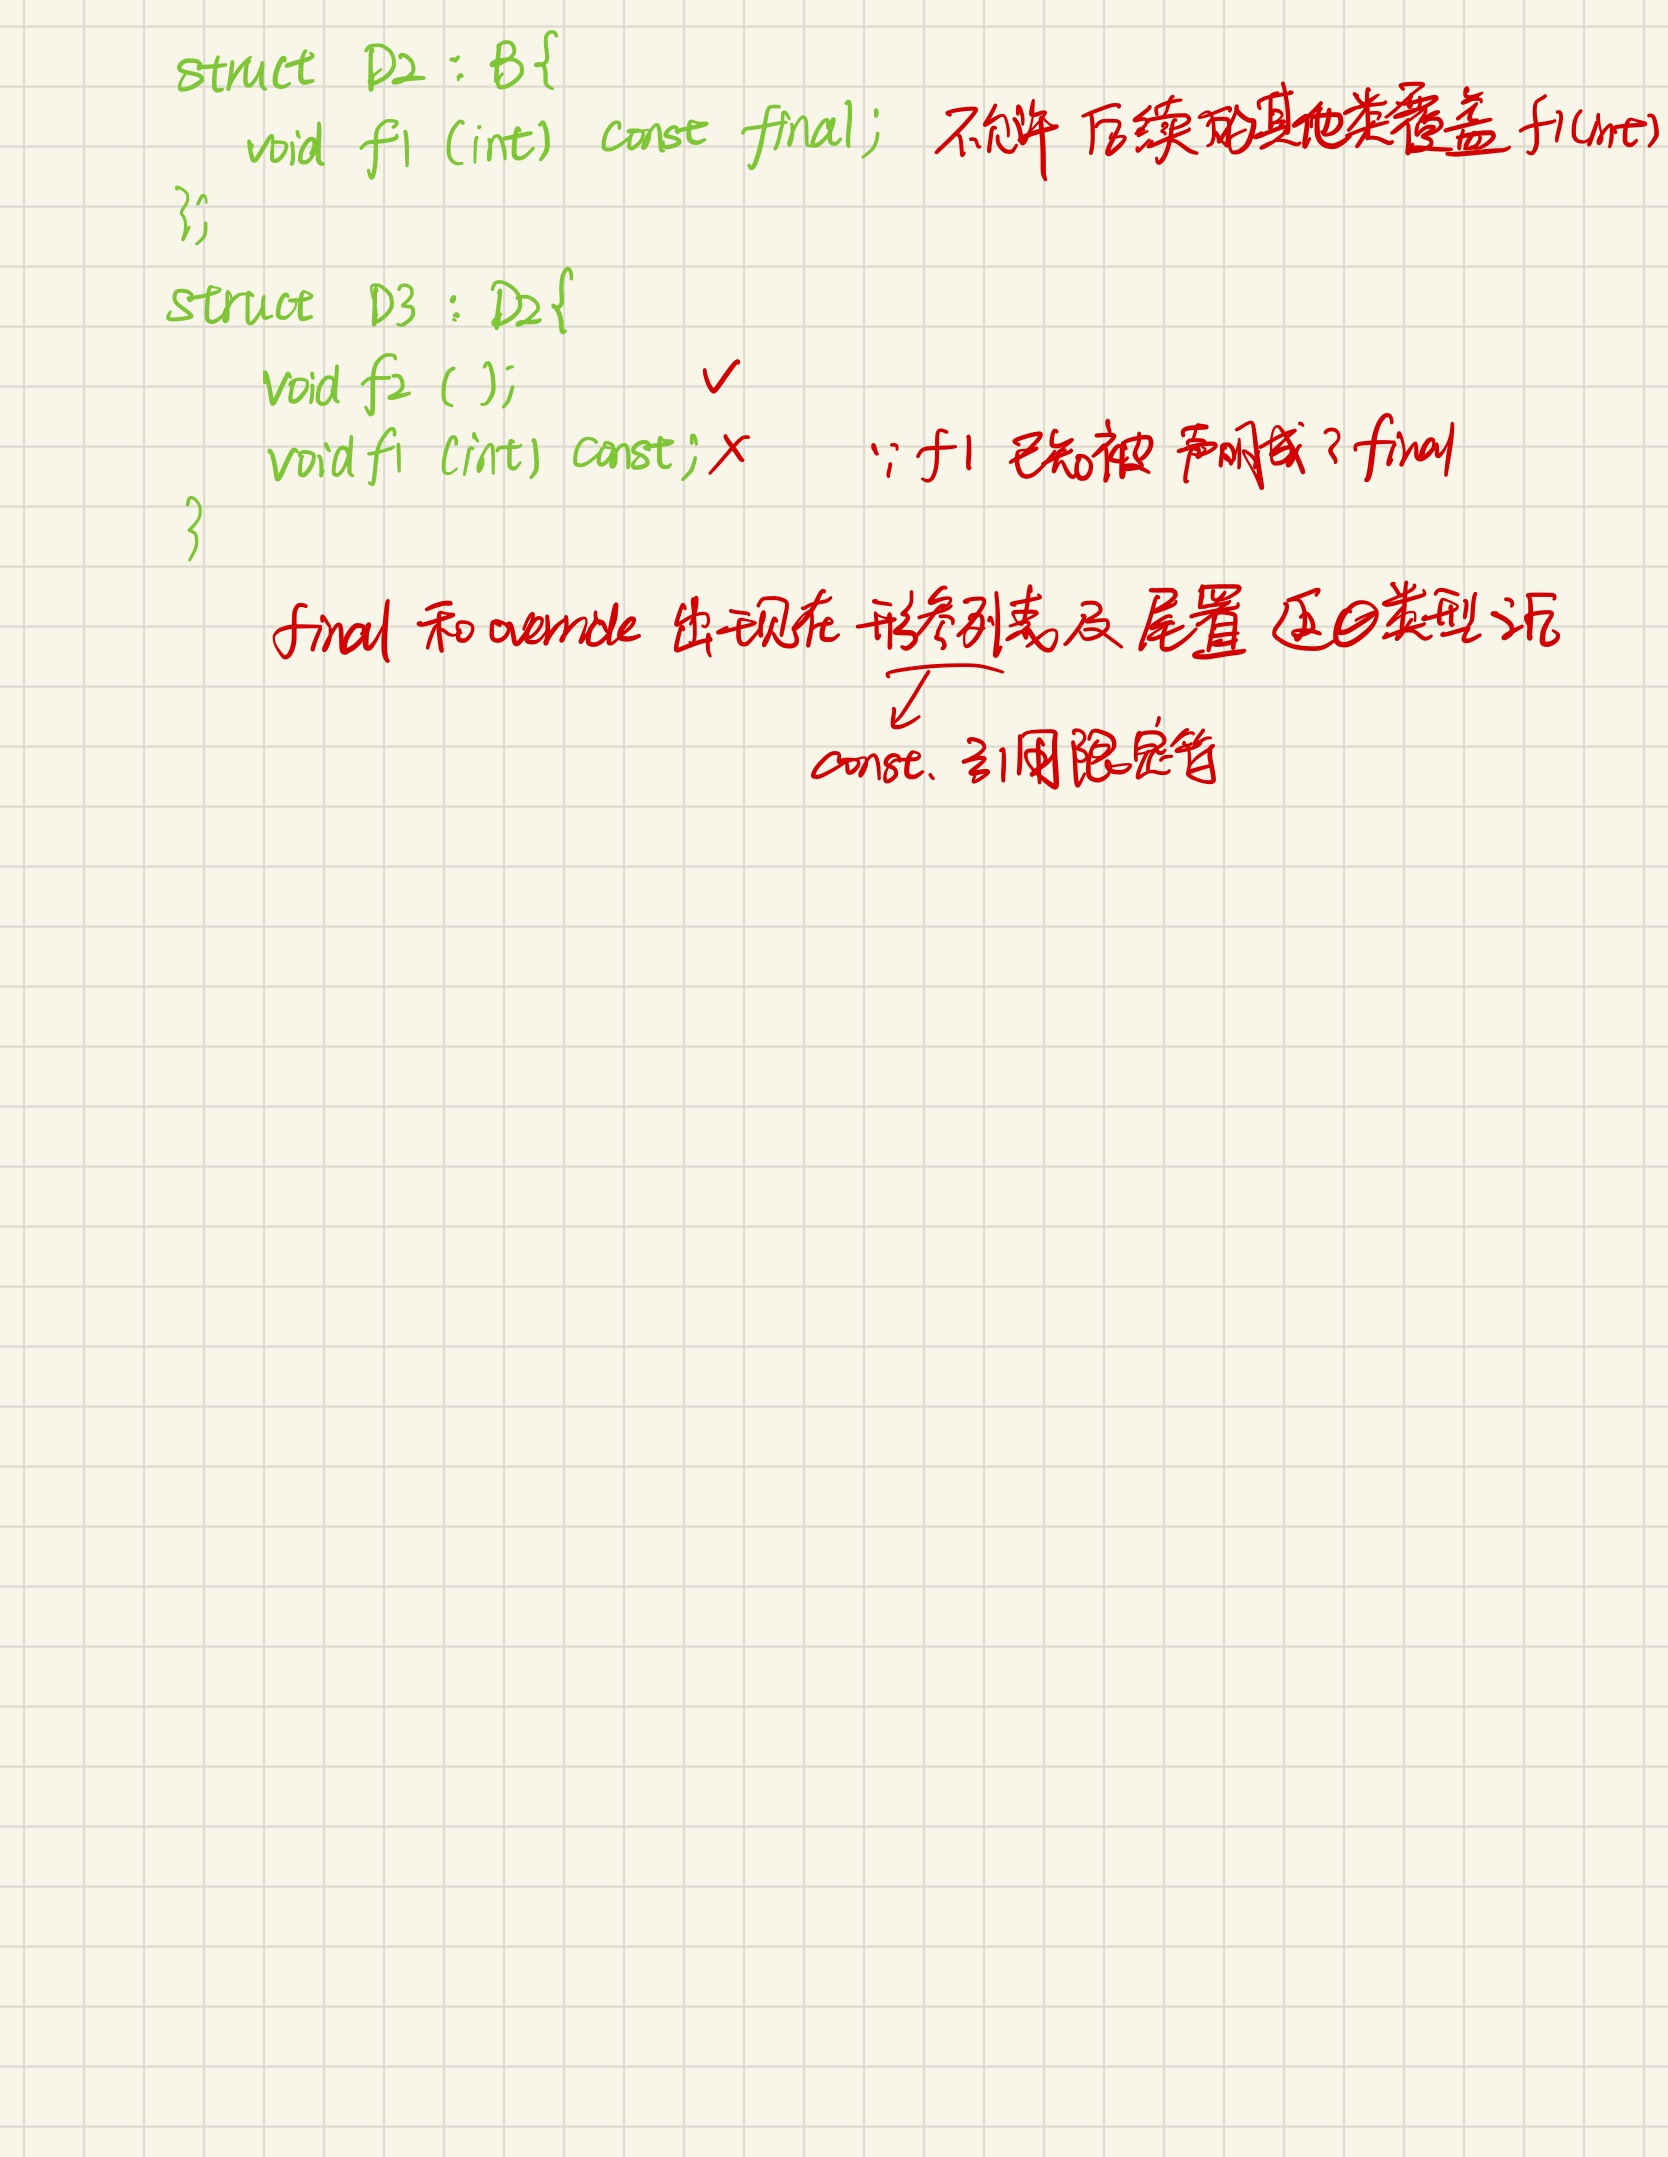 struct D2 : B{
void f1 (int) const final; 不允许后续的其他类覆盖 f1(int)
};
struct D3 : D2{
void f2 ( ); ✓
void f1 (int) const; ✗ ∵ f1 已经被声明成了 final
}
final 和 override 出现在 形参列表及 尾置 返回类型之后
const、引用限定符